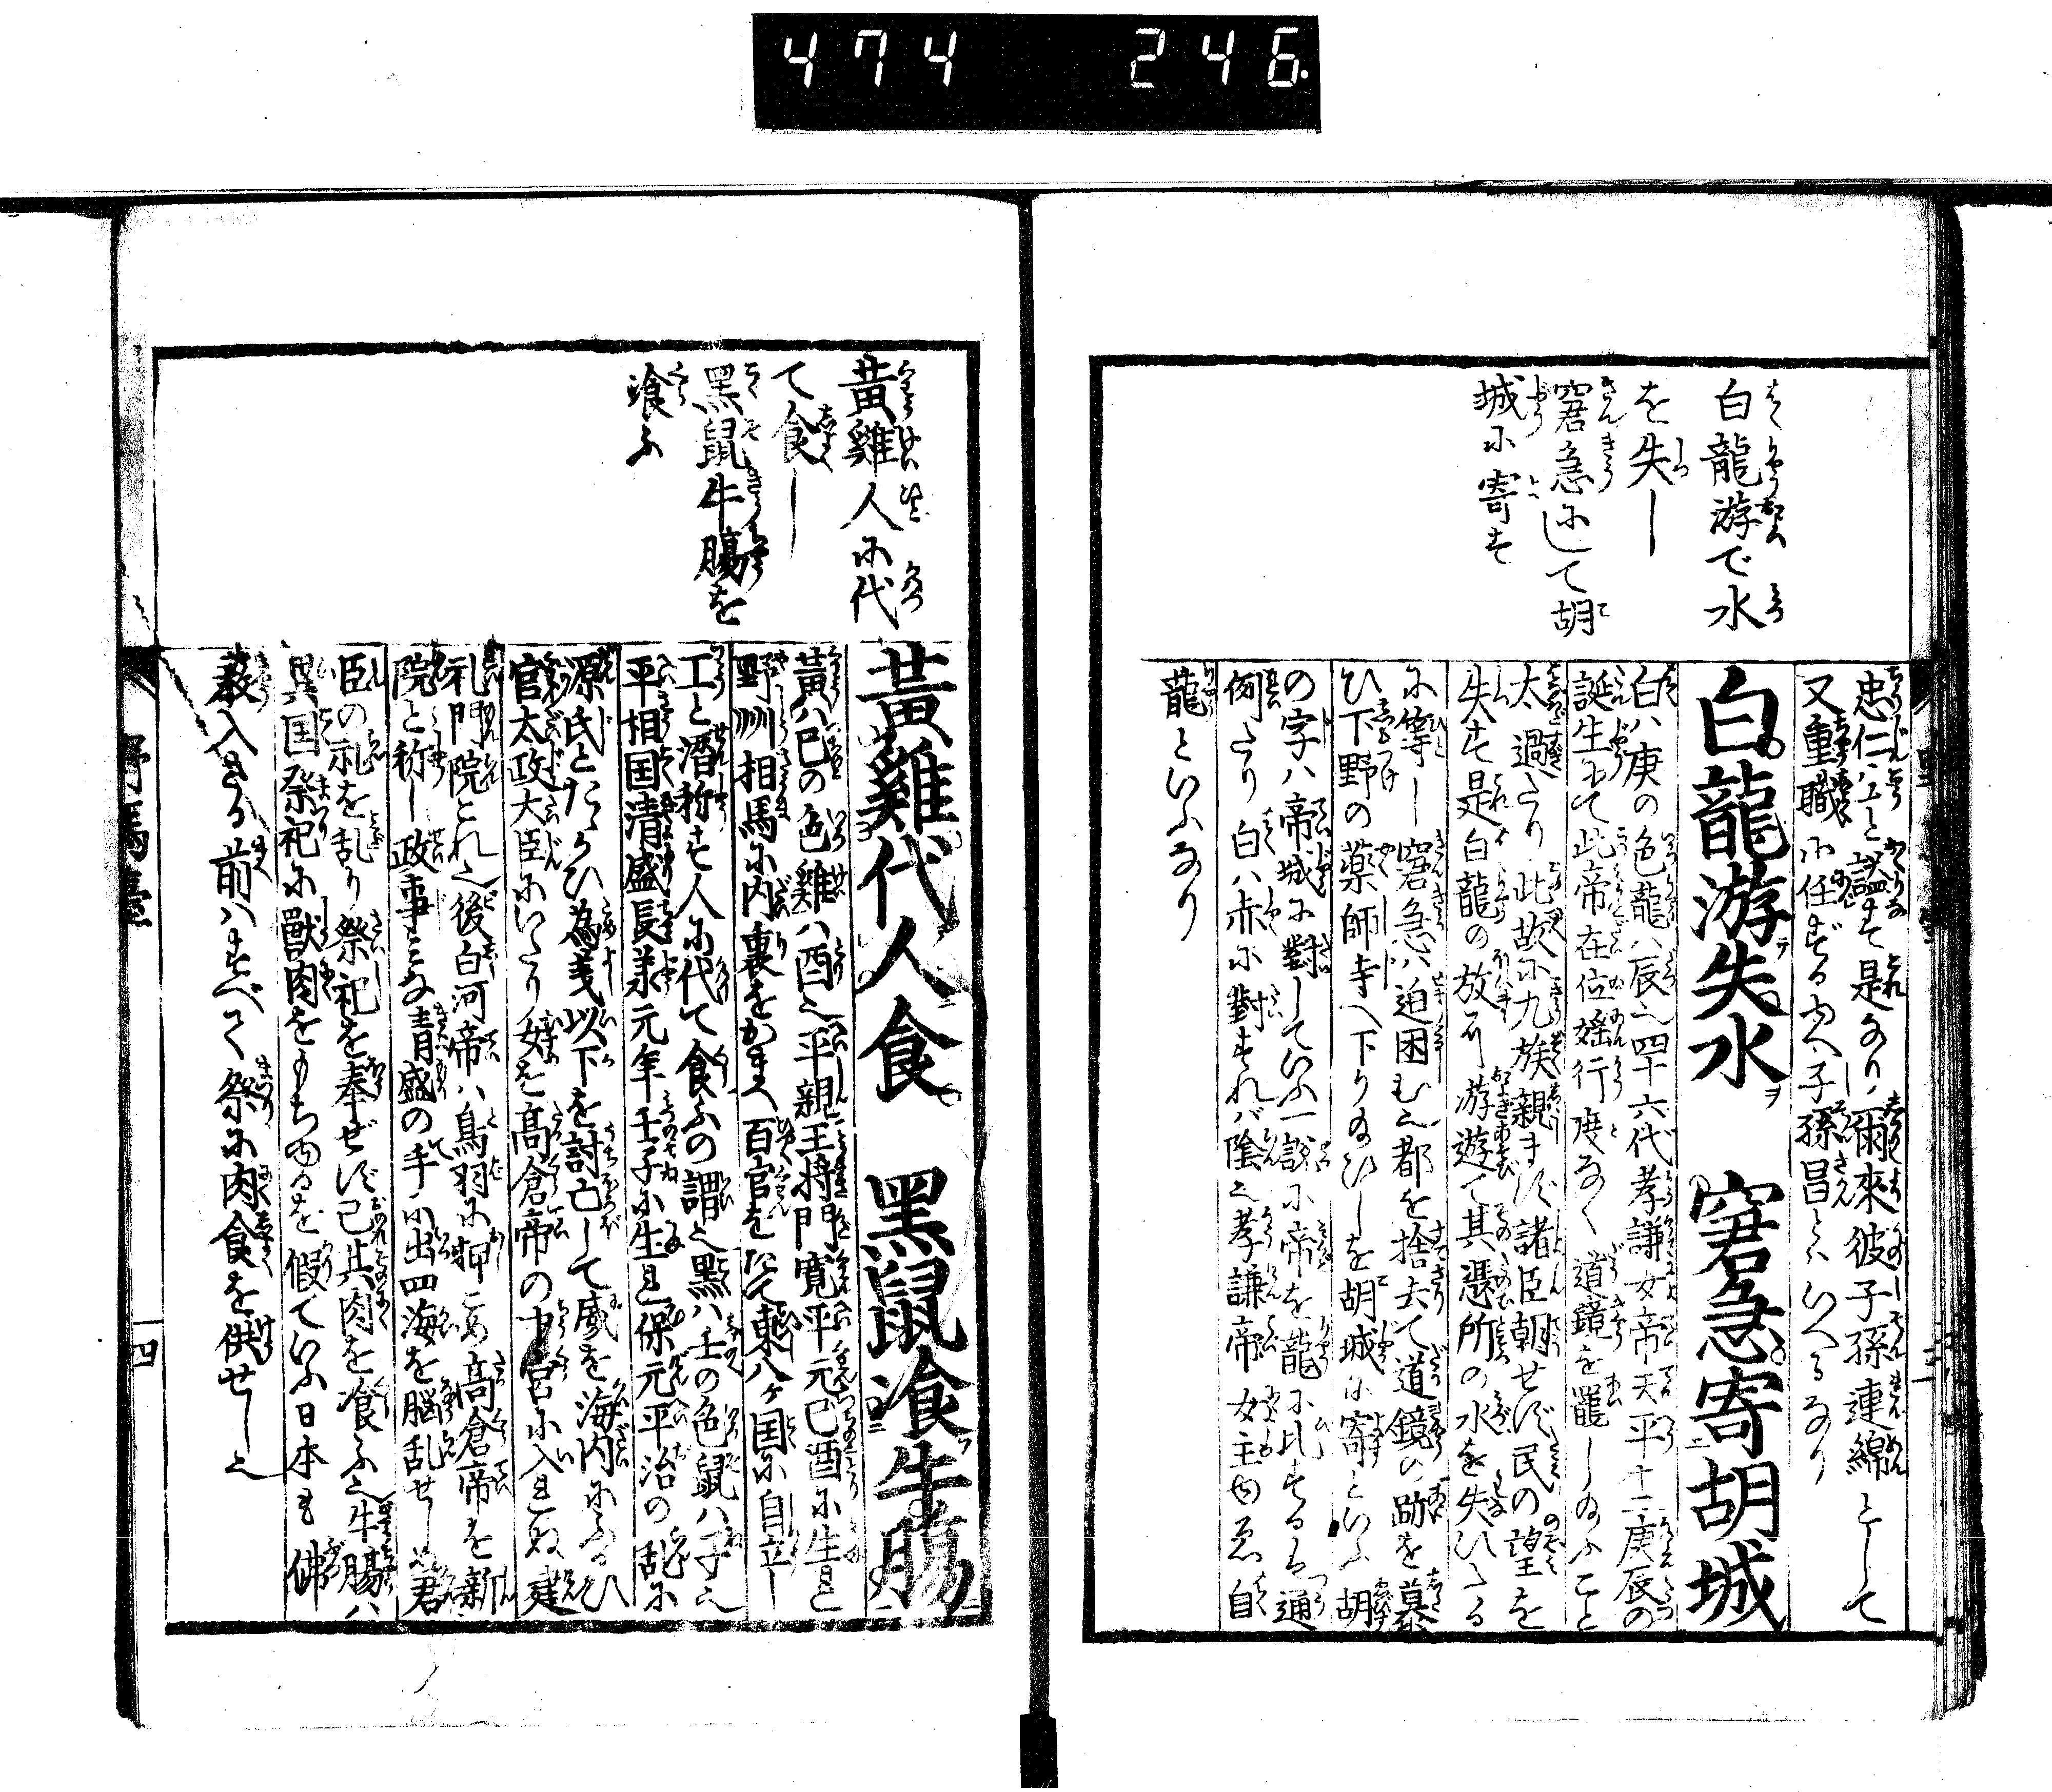 474 246
白龍游で水
を失し
窘急にして胡
城に寄す
忠仁公と諡す是なり爾來彼子孫連綿として
又重職に任ずるゆへ子孫昌といへるなり
白龍游失水 窘急寄胡城
白ハ庚の色龍ハ辰也四十六代孝謙女帝天平十二庚辰の
誕生にて此帝在位婬行度なく道鏡を寵し給ふこと
太過たり此故に九族親まず諸臣朝せず民の望を
失す是白龍の放に游遊て其憑所の水を失ひたる
に等し窘急ハ迫困む也都を捨去て道鏡の跡を慕
ひ下野の薬師寺へ下り給ひしを胡城に寄といふ胡
の字ハ帝城に對していふ一説に帝を龍に比するハ通
例たり白ハ赤に對すれバ陰也孝謙帝女主ゆゑ白
龍といふなり
黃雞人に代
て食し
黑鼠牛膓を
飡ふ
黃雞代人食 黑鼠飡牛膓
黃ハ己の色雞ハ酉也平親王將門寛平元己酉に生れ
野州相馬に内裏をかまへ百官をたて東八ケ国に自立し
王と潛称す人に代て食ふの謂也黑ハ壬の色鼠ハ子也
平相国清盛長羕元年壬子に生れ保元平治の乱に
源氏とたゝかひ為義以下を討亡して威を海内にふるひ
官太政大臣にいたり女を高倉帝の中宮に入れぬ建
礼門院これ也後白河帝ハ鳥羽に押こめ高倉帝を新
院と称し政事みな清盛の手に出四海を脳乱せし君
臣の礼を乱り祭祀を奉ぜず己其肉を飡ふ也牛膓ハ
異国祭祀に獸肉をもちゆるを假ていふ日本も佛
教入さる前ハすべて祭に肉食を供せし也
野馬臺
四